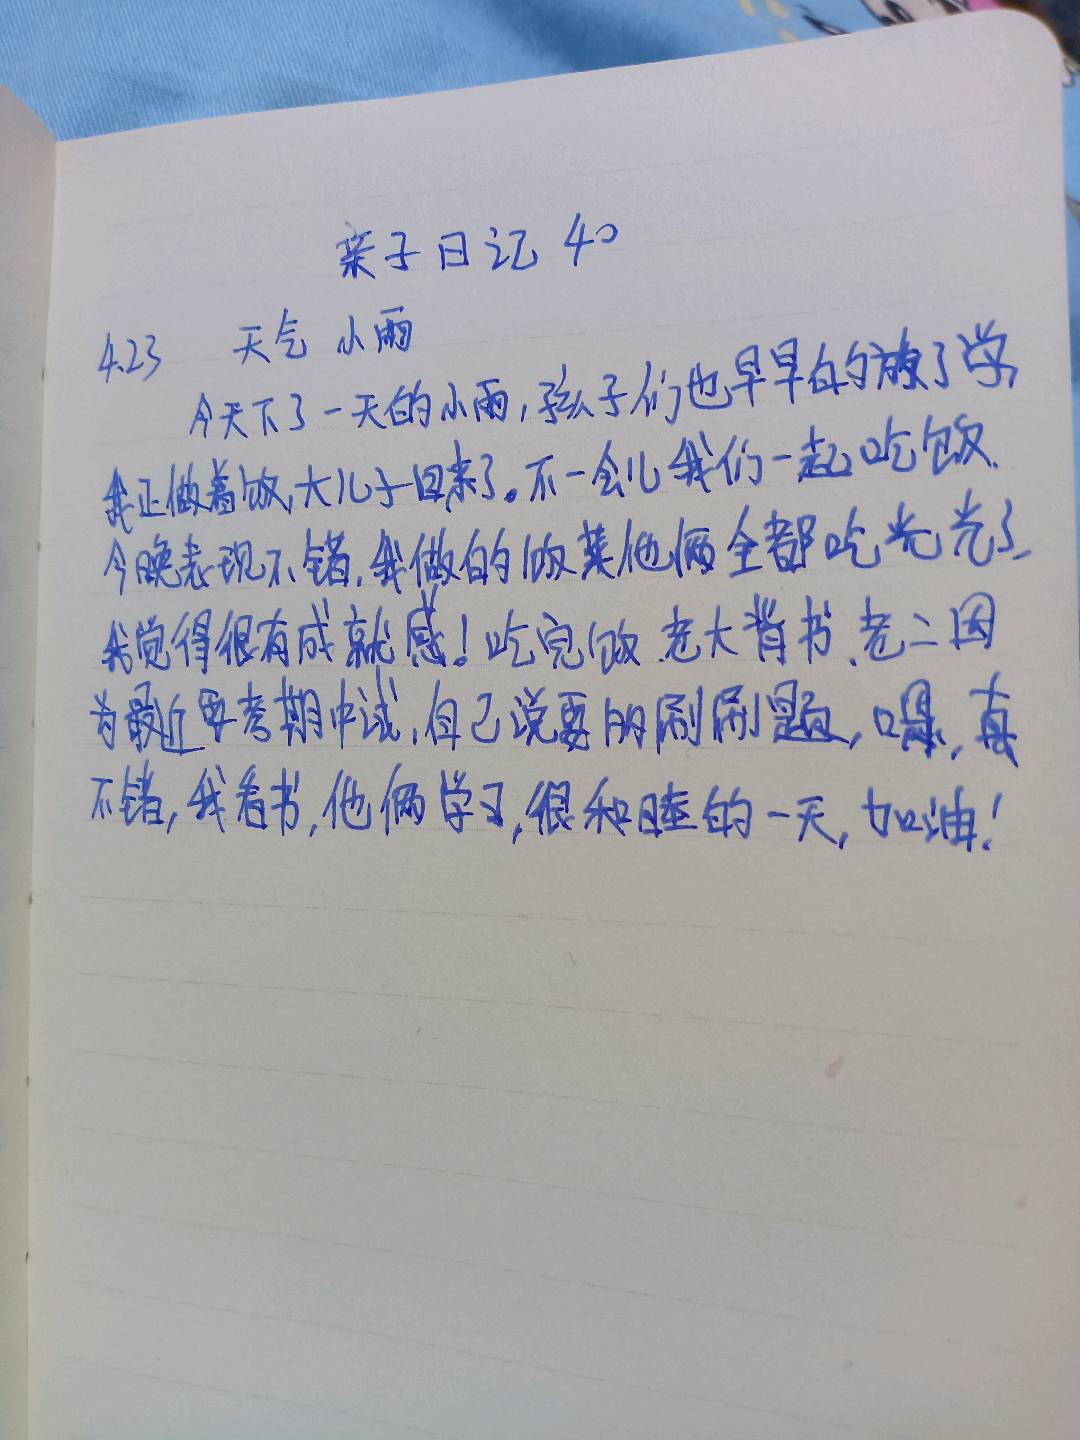 亲子日记 40
4.23 天气 小雨
今天下了一天的小雨,孩子们也早早的放了学,
我正做着饭,大儿子回来了。不一会儿我们一起吃饭.
今晚表现不错,我做的饭菜他俩全都吃光光了.
我觉得很有成就感!吃完饭.老大背书.老二因
为最近要考期中试,自己说要刷刷题,嘿,真
不错,我看书,他俩学习,很和睦的一天,加油!